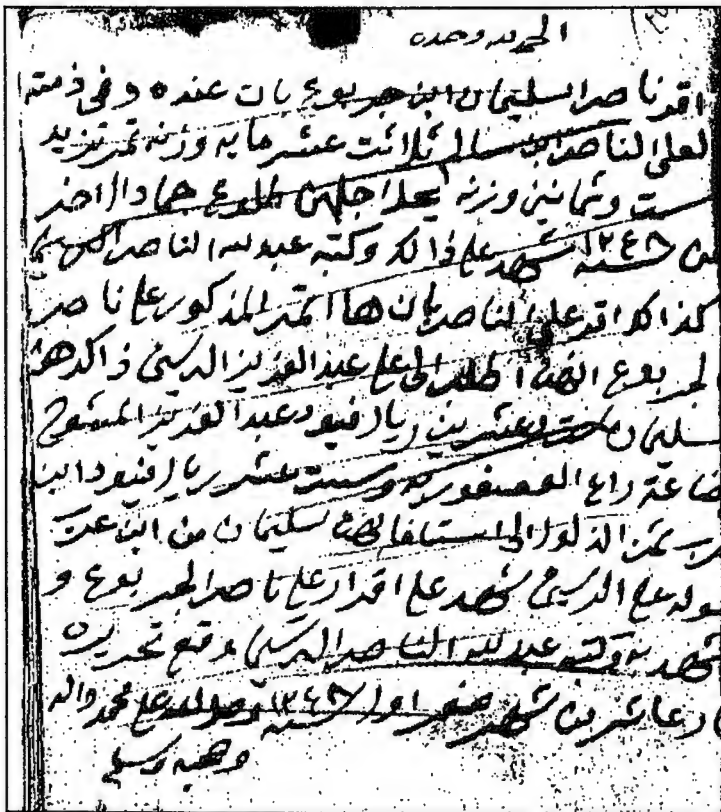 الحمد لله وحده
اقر ناصر السليمان ابن جربوع بان عنده وفي ذمته
لعلي الناصر ابن سالم ثلاثت عشر مايه وزنه تمر تزيد
ست وثمانين وزنه يحل اجلهن طلوع جماد الاخر
سنة ١٢٤٨ شهد على ذالك وكتبه عبدالله الناصر
كذالك اقر علي الناصر بان ها التمر المذكور على ناصر
الجربوع انهن الطلب الي على عبدالعزيز الرسيني ذاكرهن
سليمان وعشرين ريال فيود عبدالعزيز
بضاعة راع القصيفور وست عشر ريال فيود ابن
ثمن الذلول الي استافا لهن سليمان من ابن
على الرسيني شهد على اقرار علي ناصر الجربوع و
شهد به وكتبه عبدالله الناصر الرسيني وقع تحريره
عاشر من شهر صفر اول سنة ١٢٤٨ وصلى الله على محمد واله
وصحبه وسلم